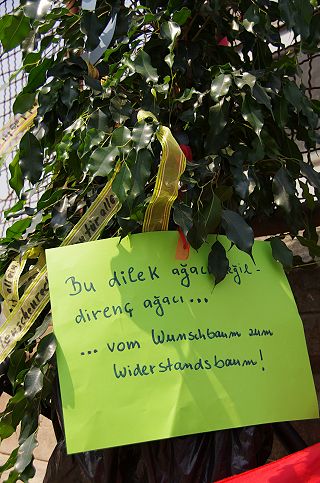 Bu dilek ağacı değil -
direnç ağacı...
... vom Wunschbaum zum
Widerstandsbaum!
für alle